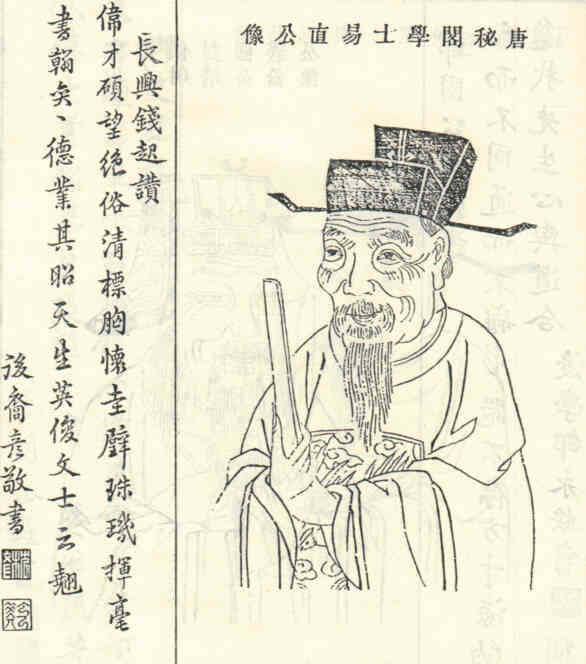 唐秘閣學士易直公像
長興錢起讚
偉才碩望絕俗清標胸懷圭璧珠璣揮毫
書翰德業其昭天生英俊文士云翹
後裔彥敬書